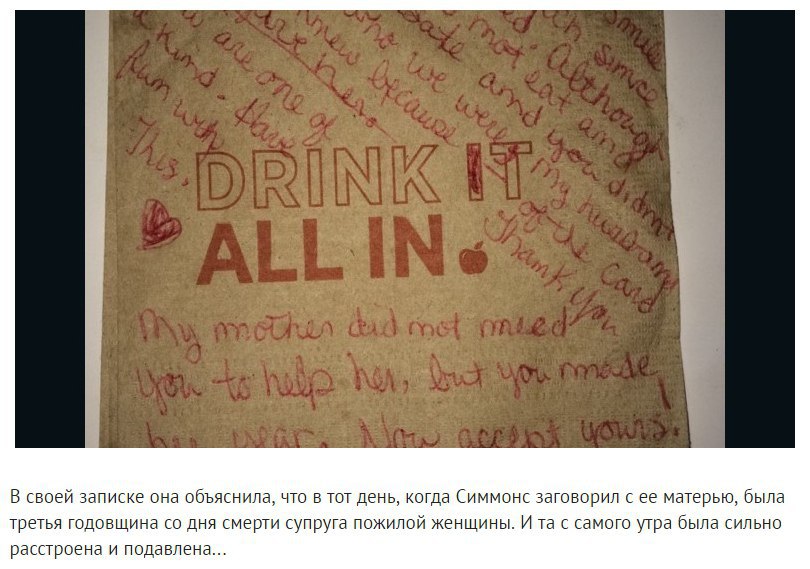 smile
service
Although
not eat and
and you didn't
who we were my husband
knew because
of the card
Thank you
are one of
a kind. Have
fun with
This.
DRINK IT
ALL IN.
My mother did not need
you to help her, but you made
her year. Now accept yours!
В своей записке она объяснила, что в тот день, когда Симмонс заговорил с ее матерью, была
третья годовщина со дня смерти супруга пожилой женщины. И та с самого утра была сильно
расстроена и подавлена...